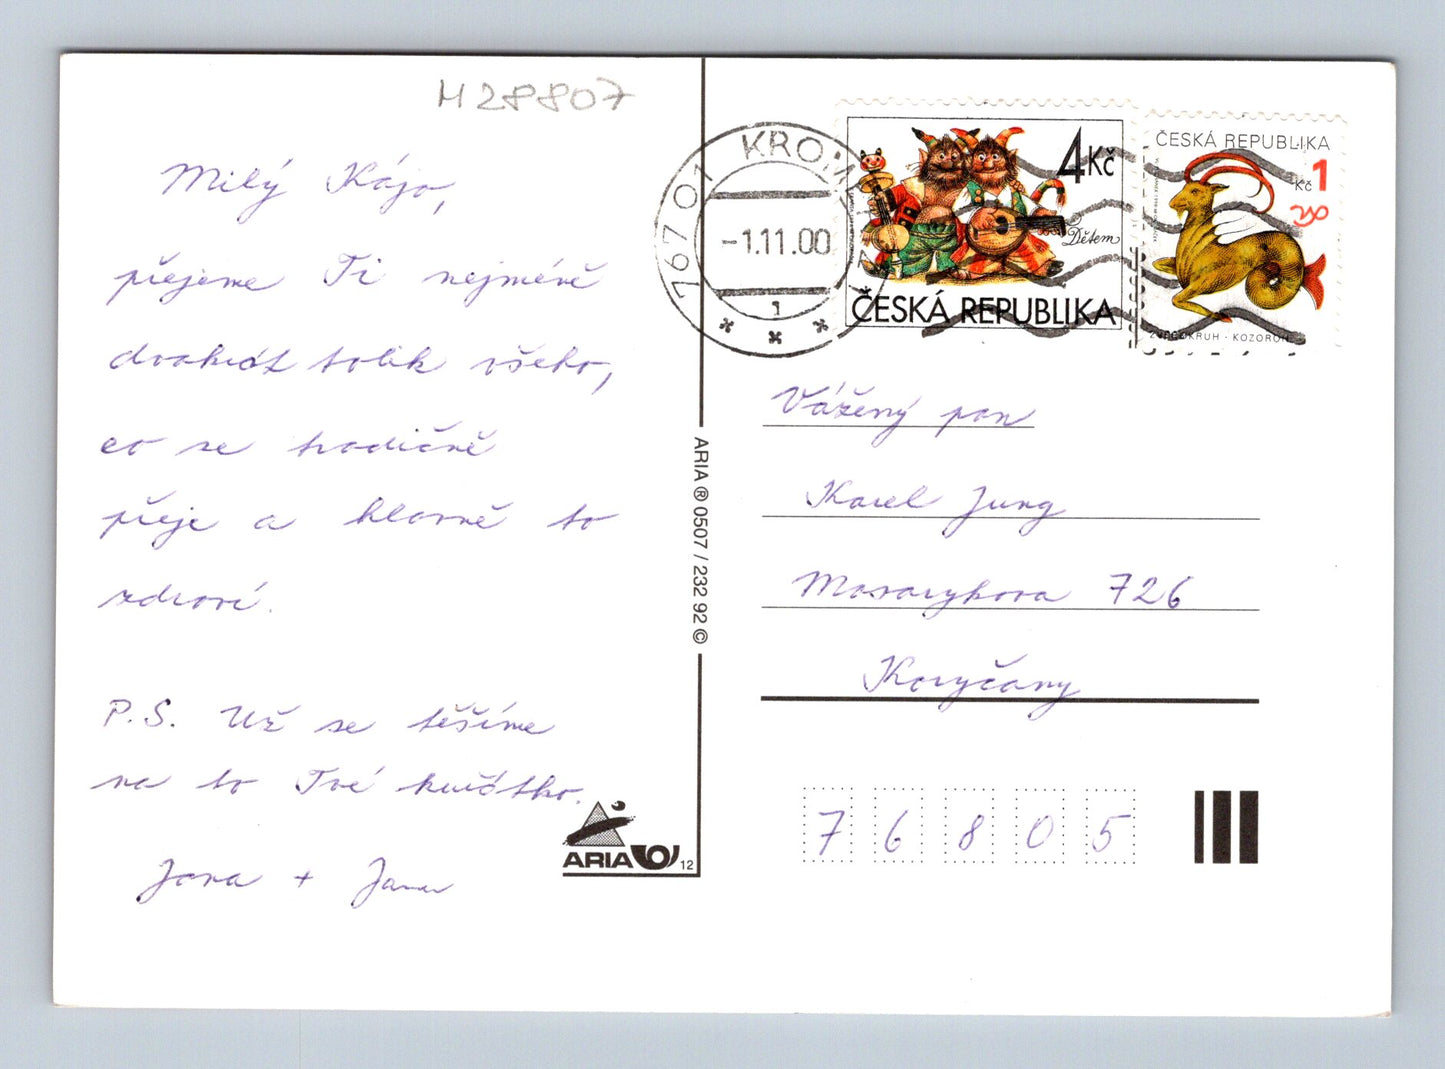 H28807
Milý Kájo,
přejeme Ti nejméně
dvakrát tolik všeho,
co se tradičně
přeje a hlavně to
zdraví.
P.S. Už se těšíme
na to Tvé kuřátko.
Jana + Jana
ARIA 12
ARIA ® 0507 / 232 92 ©
767 01 KROM
-1.11.00
1
4Kč
Dětem
ČESKÁ REPUBLIKA
ČESKÁ REPUBLIKA
Kč 1
KOZOROH
Vážený pan
Karel Jung
Masarykova 726
Koryčany
76805